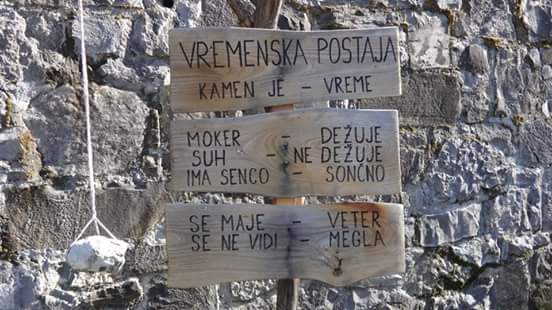 VREMENSKA POSTAJA
KAMEN JE - VREME
MOKER - DEŽUJE
SUH - NE DEŽUJE
IMA SENCO - SONČNO
SE MAJE - VETER
SE NE VIDI - MEGLA